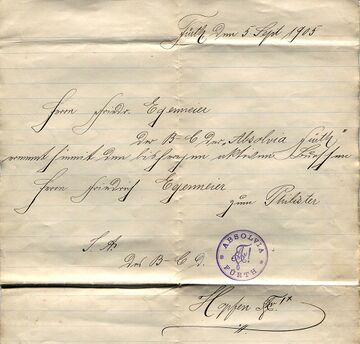 Fürth, den 5 Sept 1905
Herrn Friedr. Egenmeier
Der B-C der „Absolvia Fürth"
ernennt hiemit den bisherigen aktiven Burschen
Herrn Friedrich Egenmeier
zum Philister
I. A.
des B-C d.
ABSOLVIA
FÜRTH
Hopfen